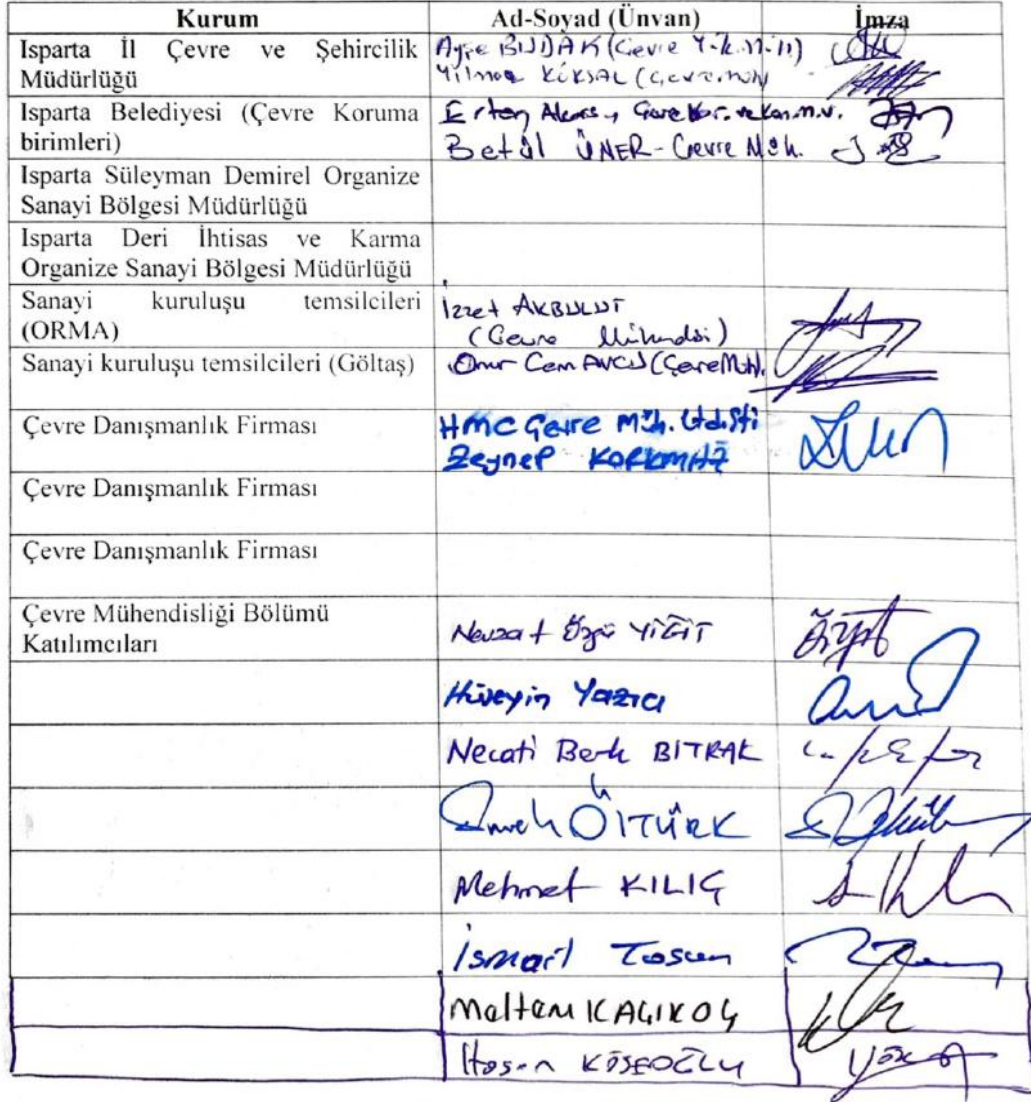 Kurum Ad-Soyad (Ünvan) İmza
Isparta İl Çevre ve Şehircilik
Müdürlüğü
Ayşe BUDAK
Yılmaz KÖKSAL
Isparta Belediyesi (Çevre Koruma
birimleri)
Betül ÜNER - Çevre Müh.
Isparta Süleyman Demirel Organize
Sanayi Bölgesi Müdürlüğü
Isparta Deri İhtisas ve Karma
Organize Sanayi Bölgesi Müdürlüğü
Sanayi kuruluşu temsilcileri
(ORMA)
İzzet AKBULUT
(Çevre Mühendisi)
Sanayi kuruluşu temsilcileri (Göltaş)
Onur Cem AVCI (Çevre Müh).
Çevre Danışmanlık Firması
HMC Çevre Müh. Ltd. Şti
Zeynep KORKMAZ
Çevre Danışmanlık Firması
Çevre Danışmanlık Firması
Çevre Mühendisliği Bölümü
Katılımcıları
Nevzat Özgü YİĞİT
Hüseyin Yazıcı
Necati Berk BITRAK
ÖZTÜRK
Mehmet KILIÇ
İsmail Tosun
Meltem KAÇIKOÇ
Hasan KÖSEOĞLU